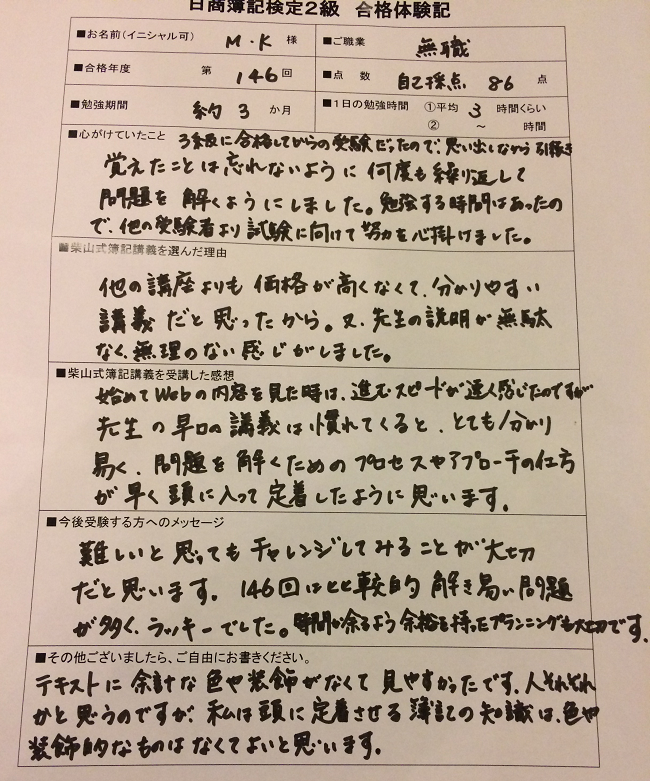 日商簿記検定2級 合格体験記
■お名前(イニシャル可) M・K 様 ■ご職業 無職
■合格年度 第 146 回 ■点 数 自己採点 86 点
■勉強期間 約 3 か月 ■1日の勉強時間 ①平均 3 時間くらい
② ～ 時間
■心がけていたこと 3級に合格してからの受験だったので、思い出しながら引続き
覚えたことは忘れないように何度も繰り返して
問題を解くようにしました。勉強する時間はあったの
で、他の受験者より試験に向けて努力を心掛けました。
■柴山式簿記講義を選んだ理由
他の講座よりも価格が高くなくて、分かりやすい
講義だと思ったから。又、先生の説明が無駄
なく、無理のない感じがしました。
■柴山式簿記講義を受講した感想
始めてWebの内容を見た時は、進むスピードが速く感じたのですが
先生の早口の講義は慣れてくると、とても分かり
易く、問題を解くためのプロセスやアプローチの仕方
が早く頭に入って定着したように思います。
■今後受験する方へのメッセージ
難しいと思ってもチャレンジしてみることが大切
だと思います。146回は比較的解き易い問題
が多く、ラッキーでした。時間が余るよう余裕を持ったプランニングも大切です。
■その他ございましたら、ご自由にお書きください。
テキストに余計な色や装飾がなくて見やすかったです。人それぞれ
かと思うのですが、私は頭に定着させる簿記の知識は、色や
装飾的なものはなくてよいと思います。